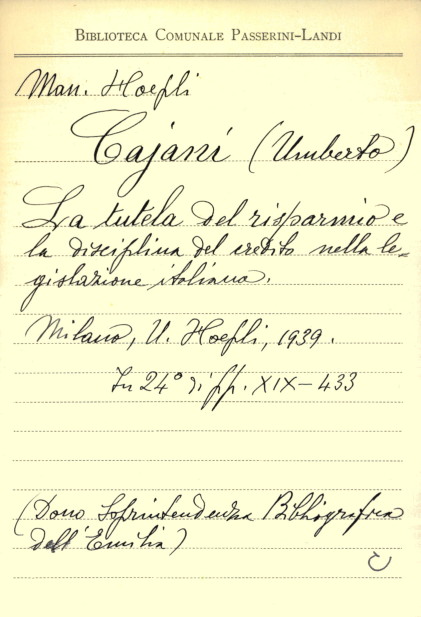 BIBLIOTECA COMUNALE PASSERINI-LANDI
Man. Hoepli
Cajani (Umberto)
La tutela del risparmio e
la disciplina del credito nella le=
gislazione italiana.
Milano, U. Hoepli, 1939.
In 24° di pp. XIX-433
(Dono Soprintendenza Bibliografica
dell'Emilia)